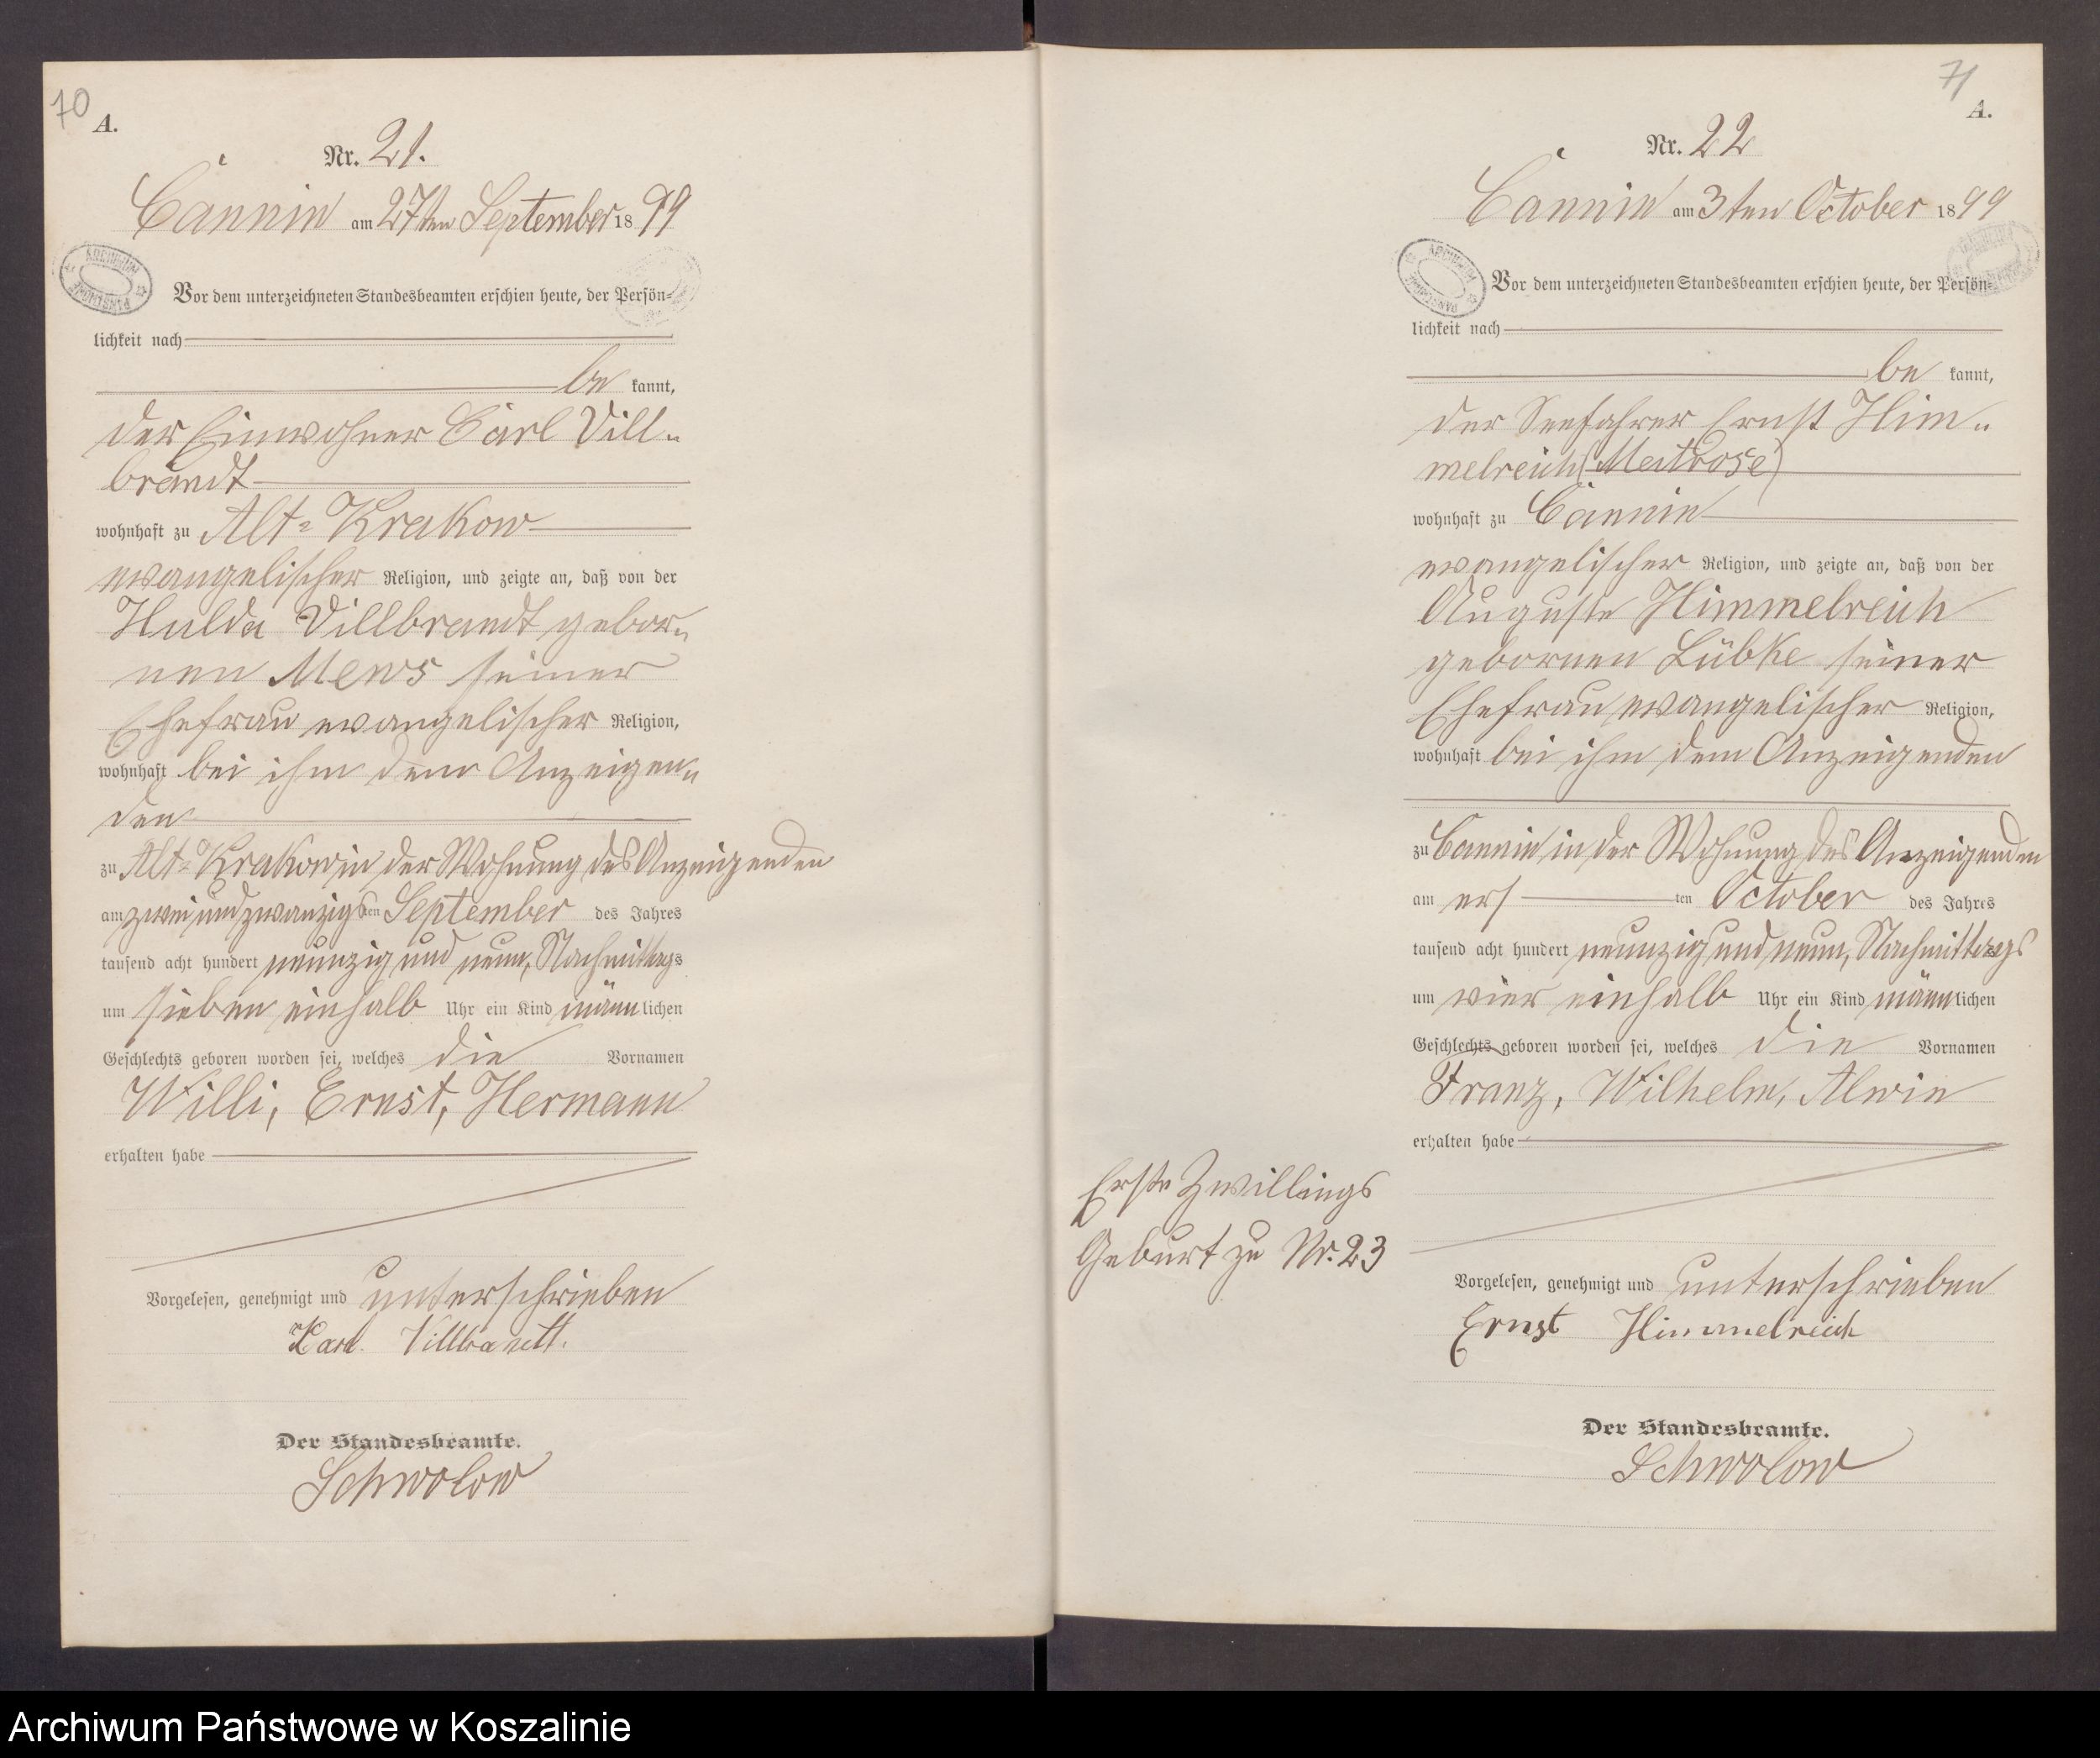 70
A.
Nr. 21.
Cannin am 27ten September 1899
Vor dem unterzeichneten Standesbeamten erschien heute, der Persön-
lichkeit nach
be kannt,
der Einwohner Carl Vill-
brandt
wohnhaft zu Alt-Krakow
evangelischer Religion, und zeigte an, daß von der
Hulda Villbrandt gebor-
nen Mews seiner
Ehefrau evangelischer Religion,
wohnhaft bei ihm dem Anzeigen-
den
zu Alt-Krakow in der Wohnung des Anzeigenden
am zwei und zwanzigsten September des Jahres
tausend acht hundert neunzig und neun, Nachmittags
um sieben einhalb Uhr ein Kind männlichen
Geschlechts geboren worden sei, welches die Vornamen
Willi, Ernst, Hermann
erhalten habe
Vorgelesen, genehmigt und unterschrieben
Karl Villbrandt.
Der Standesbeamte.
Schwolow
71
A.
Nr. 22
Cannin am 3ten October 1899
Vor dem unterzeichneten Standesbeamten erschien heute, der Persön-
lichkeit nach
be kannt,
der Seefahrer Ernst Him-
melreich (Matrose)
wohnhaft zu Cannin
evangelischer Religion, und zeigte an, daß von der
Auguste Himmelreich
gebornen Lübke seiner
Ehefrau evangelischer Religion,
wohnhaft bei ihm dem Anzeigenden
zu Cannin in der Wohnung des Anzeigenden
am ers ten October des Jahres
tausend acht hundert neunzig und neun, Nachmittags
um vier einhalb Uhr ein Kind männlichen
Geschlechts geboren worden sei, welches die Vornamen
Franz, Wilhelm, Alwin
erhalten habe
Erste Zwillings
Geburt zu Nr. 23
Vorgelesen, genehmigt und unterschrieben
Ernst Himmelreich
Der Standesbeamte.
Schwolow
Archiwum Państwowe w Koszalinie